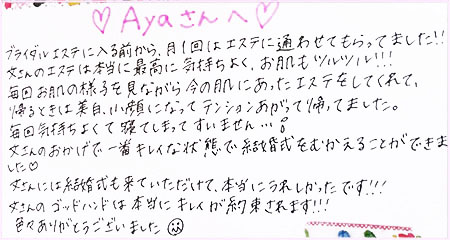 ♡Ayaさんへ♡
ブライダルエステに入る前から、月1回はエステに通わせてもらってました!!
文さんのエステは本当に最高に気持ちよく、お肌もツルツル!!!
毎回お肌の様子を見ながら今の肌にあったエステをしてくれて、
帰るときは美白、小顔になってテンションあがって帰ってました。
毎回気持ちよくて寝てしまってすいません…!
文さんのおかげで一番キレイな状態で結婚式をむかえることができま
した♡
文さんには結婚式も来ていただけて、本当にうれしかったです!!!
文さんのゴッドハンドは本当にキレイが約束されます!!!
色々ありがとうございました